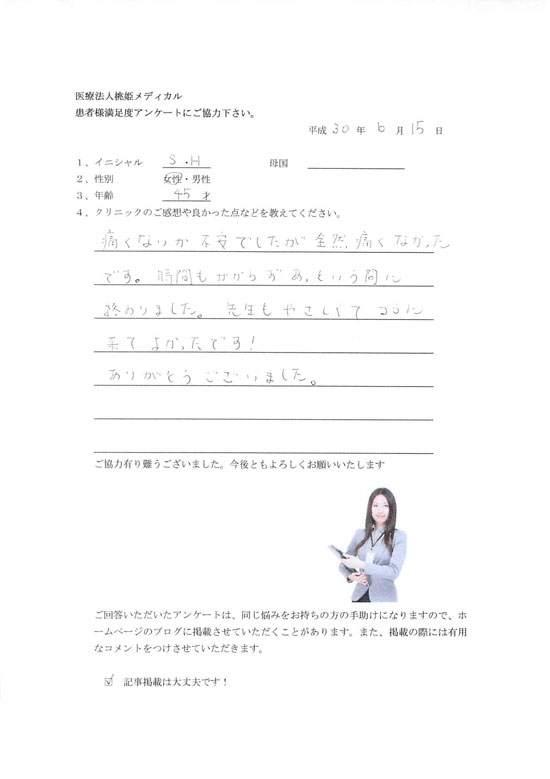 医療法人桃姫メディカル
患者様満足度アンケートにご協力下さい。
平成 30 年 6 月 15 日
1、イニシャル S・H 母国
2、性別 女性・男性
3、年齢 45 才
4、クリニックのご感想や良かった点などを教えてください。
痛くないか不安でしたが全然痛くなかった
です。時間もかからずあっという間に
終わりました。先生もやさしくてココに
来てよかったです!
ありがとうございました。
ご協力有り難うございました。今後ともよろしくお願いいたします
ご回答いただいたアンケートは、同じ悩みをお持ちの方の手助けになりますので、ホ
ームページのブログに掲載させていただくことがあります。また、掲載の際には有用
なコメントをつけさせていただきます。
☑ 記事掲載は大丈夫です!